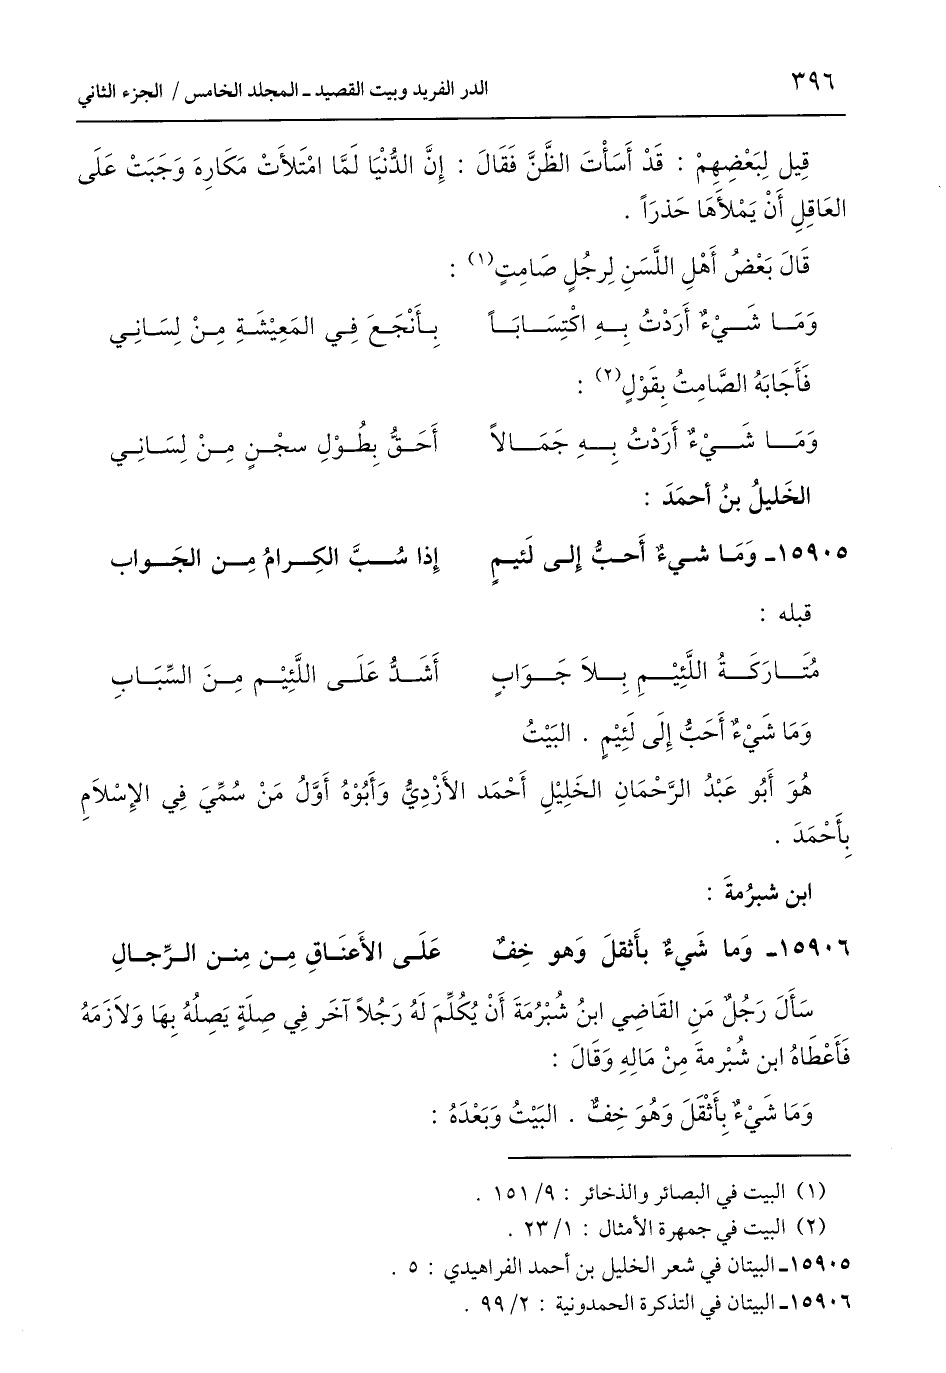 ٣٩٦
الدر الفريد وبيت القصيد ـ المجلد الخامس / الجزء الثاني
قِيل لِبَعْضِهِمْ : قَدْ أَسَأْتَ الظَّنَّ فَقَالَ : إِنَّ الدُّنْيَا لَمَّا امْتَلَأَتْ مَكَارِهَ وَجَبَتْ عَلَى
العَاقِلِ أَنْ يَمْلَأَهَا حَذرَاً .
قَالَ بَعْضُ أَهْلِ اللَّسَنِ لِرجُلٍ صَامِتٍ(١) :
وَمَا شَيْءٌ أَرَدْتُ بِهِ اكْتِسَابَاً بِأَنْجَعَ فِي المَعِيْشَةِ مِنْ لِسَانِي
فَأَجَابَهُ الصَّامِتُ بِقَوْلٍ(٢) :
وَمَا شَيْءٌ أَرَدْتُ بِهِ جَمَالاً أَحَقُّ بِطُوْلِ سجْنٍ مِنْ لِسَانِي
الخَليلُ بنُ أحمَدَ :
١٥٩٠٥ـ وَمَا شيءٌ أَحبُّ إلى لَئيمٍ إذا سُبَّ الكِرامُ مِن الجَواب
قبله :
مُتَارَكَةُ اللَّئِيْمِ بِلاَ جَوَابٍ أَشَدُّ عَلَى اللَّئِيْمِ مِنَ السِّبَابِ
وَمَا شَيْءٌ أَحَبُّ إِلَى لَئِيْمٍ . البَيْتُ
هُوَ أَبُو عَبْدُ الرَّحْمَانِ الخَلِيْلِ أَحْمَد الأَزْدِيُّ وَأَبُوْهُ أَوَّلُ مَنْ سُمِّيَ فِي الإِسْلاَمِ
بِأَحْمَدَ .
ابن شبرُمةَ :
١٥٩٠٦ـ وَما شَيءٌ بأَثقلَ وَهو خِفٌ عَلَى الأَعنَاقِ مِن مِنن الرِّجالِ
سَأَلَ رَجُلٌ مَن القَاضِي ابنُ شُبْرُمَةَ أَنْ يُكُلِّمَ لَهُ رَجُلاً آخَر فِي صِلَةٍ يَصِلُهُ بِهَا وَلاَزَمَهُ
فَأَعْطَاهُ ابن شُبْرمةَ مِنْ مَالِهِ وَقَالَ :
وَمَا شَيْءٌ بِأَثْقَلَ وَهُوَ خِفٌّ . البَيْتُ وَبَعْدَهُ :
(١) البيت في البصائر والذخائر : ٩/ ١٥١ .
(٢) البيت في جمهرة الأمثال : ١/ ٢٣ .
١٥٩٠٥ـ البيتان في شعر الخليل بن أحمد الفراهيدي : ٥ .
١٥٩٠٦ـ البيتان في التذكرة الحمدونية : ٢/ ٩٩ .